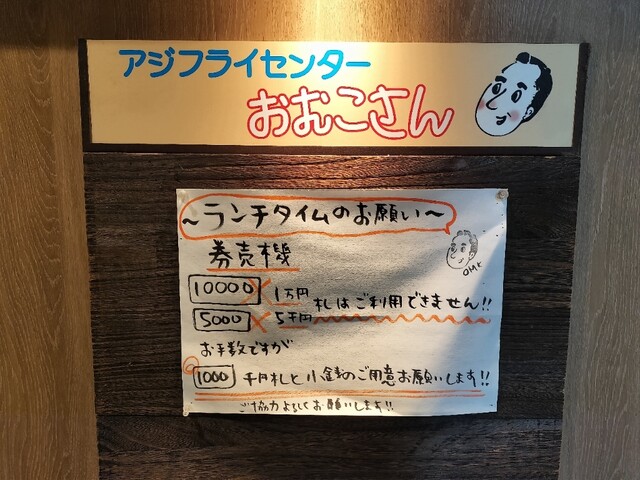 アジフライセンター
おむこさん
~ランチタイムのお願い~
券売機
OMK
10000 × 1万円
5000 × 5千円 札はご利用できません!!
お手数ですが
1000 千円札と小銭のご用意お願いします!!
ご協力よろしくお願いします!!